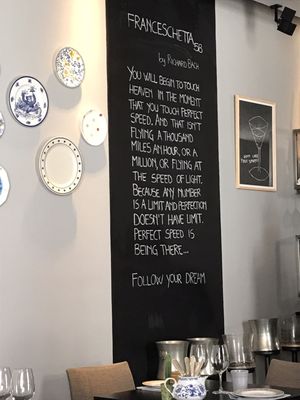 FRANCESCHETTA '58
by RICHARD BACH
YOU WILL BEGIN TO TOUCH
HEAVEN IN THE MOMENT
THAT YOU TOUCH PERFECT
SPEED. AND THAT ISN'T
FLYING A THOUSAND
MILES AN HOUR, OR A
MILLION, OR FLYING AT
THE SPEED OF LIGHT.
BECAUSE ANY NUMBER
IS A LIMIT AND PERFECTION
DOESN'T HAVE LIMIT.
PERFECT SPEED IS
BEING THERE...
FOLLOW YOUR DREAM